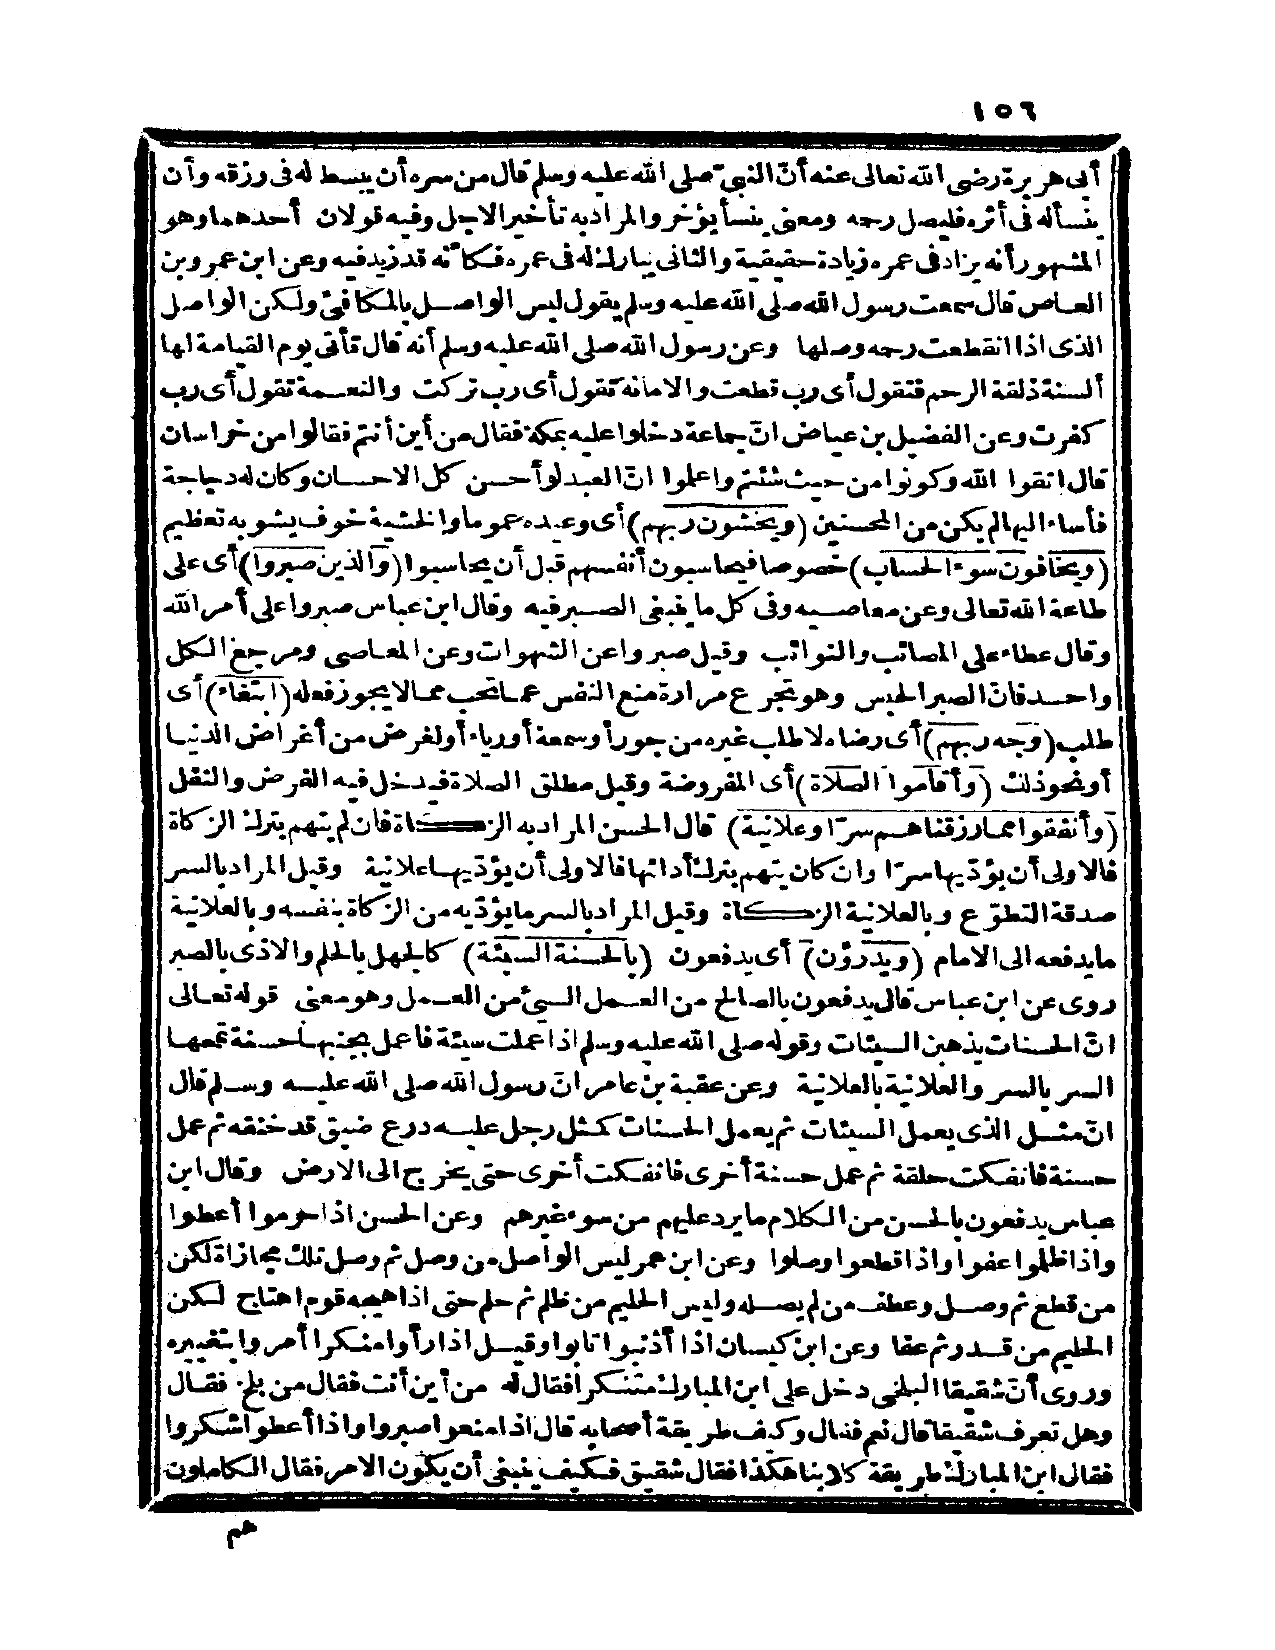 ١٥٦
أبى هريرة رضى الله تعالى عنه أنّ النبىّ صلى الله عليه وسلم قال من سره أن يبسط له فى رزقه وأن
ينسأ له فى أثره فليصل رحمه ومعنى ينسأ يؤخر والمراد به تأخير الاجل وفيه قولان أحدهما وهو
المشهور أنه يزاد فى عمره زيادة حقيقية والثانى يبارك له فى عمره فكأنه قد زيد فيه وعن ابن عمرو بن
العاص قال سمعت رسول الله صلى الله عليه وسلم يقول ليس الواصل بالمكافئ ولكن الواصل
الذى اذا انقطعت رحمه وصلها وعن رسول الله صلى الله عليه وسلم أنه قال تأتى يوم القيامة لها
ألسنة ذلقة الرحم فتقول أى رب قطعت والامانه تقول أى رب تركت والنعمة تقول أى رب
كفرت وعن الفضيل بن عياض انّ جماعة دخلوا عليه بمكة فقال من أين أنتم فقالوا من خراسان
قال اتقوا الله وكونوا من حيث شئتم واعلموا انّ العبد لو أحسن كل الاحسان وكان له دجاجة
فأساء اليها لم يكن من المحسنين (ويخشون ربهم) أى وعيده عموما والخشية خوف يشوبه تعظيم
(ويخافون سوء الحساب) خصوصا فيحاسبون أنفسهم قبل أن يحاسبوا (والذين صبروا) أى على
طاعة الله تعالى وعن معاصيه وفى كل ما ينبغى الصبر فيه وقال ابن عباس صبروا على أمر الله
وقال عطاء على المصائب والنوائب وقيل صبروا عن الشهوات وعن المعاصى ومرجع الكل
واحد فانّ الصبر الحبس وهو تجرع مرارة منع النفس عما تحب مما لا يجوز فعله (ابتغاء) أى
طلب (وجه ربهم) أى رضاه لا طلب غيره من جور أو سمعة أو رياء أو لغرض من أغراض الدنيا
أو نحو ذلك (وأقاموا الصلاة) أى المفروضة وقيل مطلق الصلاة فيدخل فيه الفرض والنفل
(وأنفقوا مما رزقناهم سرّا وعلانية) قال الحسن المراد به الزكاة فان لم يتهم بترك الزكاة
فالاولى أن يؤدّيها سرّا وان كان يتهم بترك أدائها فالاولى أن يؤدّيها علانية وقيل المراد بالسر
صدقة التطوّع وبالعلانية الزكاة وقيل المراد بالسر ما يؤدّيه من الزكاة بنفسه وبالعلانية
ما يدفعه الى الامام (ويدرؤن) أى يدفعون (بالحسنة السيئة) كالجهل بالحلم والاذى بالصبر
روى عن ابن عباس قال يدفعون بالصالح من العمل السيئ من العمل وهو معنى قوله تعالى
انّ الحسنات يذهبن السيئات وقوله صلى الله عليه وسلم اذا عملت سيئة فاعمل بجنبها حسنة تمحها
السر بالسر والعلانية بالعلانية وعن عقبة بن عامر انّ رسول الله صلى الله عليه وسلم قال
انّ مثل الذى يعمل السيئات ثم يعمل الحسنات كمثل رجل عليه درع ضيق قد خنقه ثم عمل
حسنة فانفكت حلقة ثم عمل حسنة أخرى فانفكت أخرى حتى يخرج الى الارض وقال ابن
عباس يدفعون بالحسن من الكلام ما يرد عليهم من سوء غيرهم وعن الحسن اذا حرموا أعطوا
واذا ظلموا عفوا واذا قطعوا وصلوا وعن ابن عمر ليس الواصل من وصل ثم وصل تلك مجازاة لكن
من قطع ثم وصل وعطف من لم يصله وليس الحليم من ظلم ثم حلم حتى اذا هيجه قوم اهتاج لكن
الحليم من قدر ثم عفا وعن ابن كيسان اذا أذنبوا تابوا وقيل اذا رأوا منكرا أمروا بتغييره
وروى أنّ شقيقا البلخى دخل على ابن المبارك متنكرا فقال له من أين أنت فقال من بلخ فقال
وهل تعرف شقيقا قال نعم فقال وكيف طريقة أصحابه قال اذا منعوا صبروا واذا أعطوا شكروا
فقال ابن المبارك طريقة كلابنا هكذا فقال شقيق فكيف ينبغى أن يكون الامر فقال الكاملون
هم